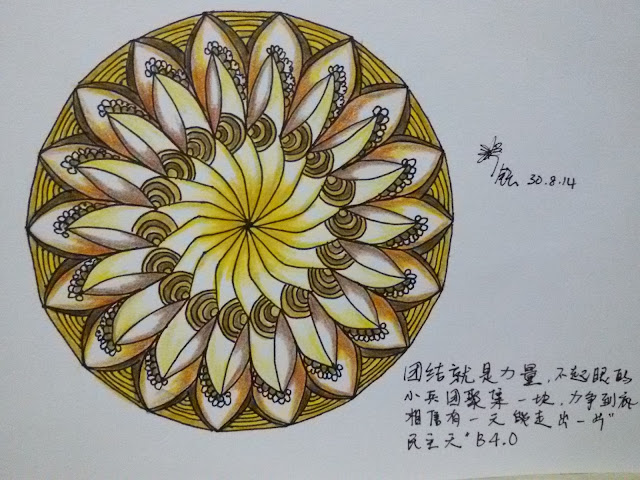 30.8.14
团结就是力量，不起眼的
小兵团聚集一块，力争到底
相信有一元能走出一片"
民主元"B4.0